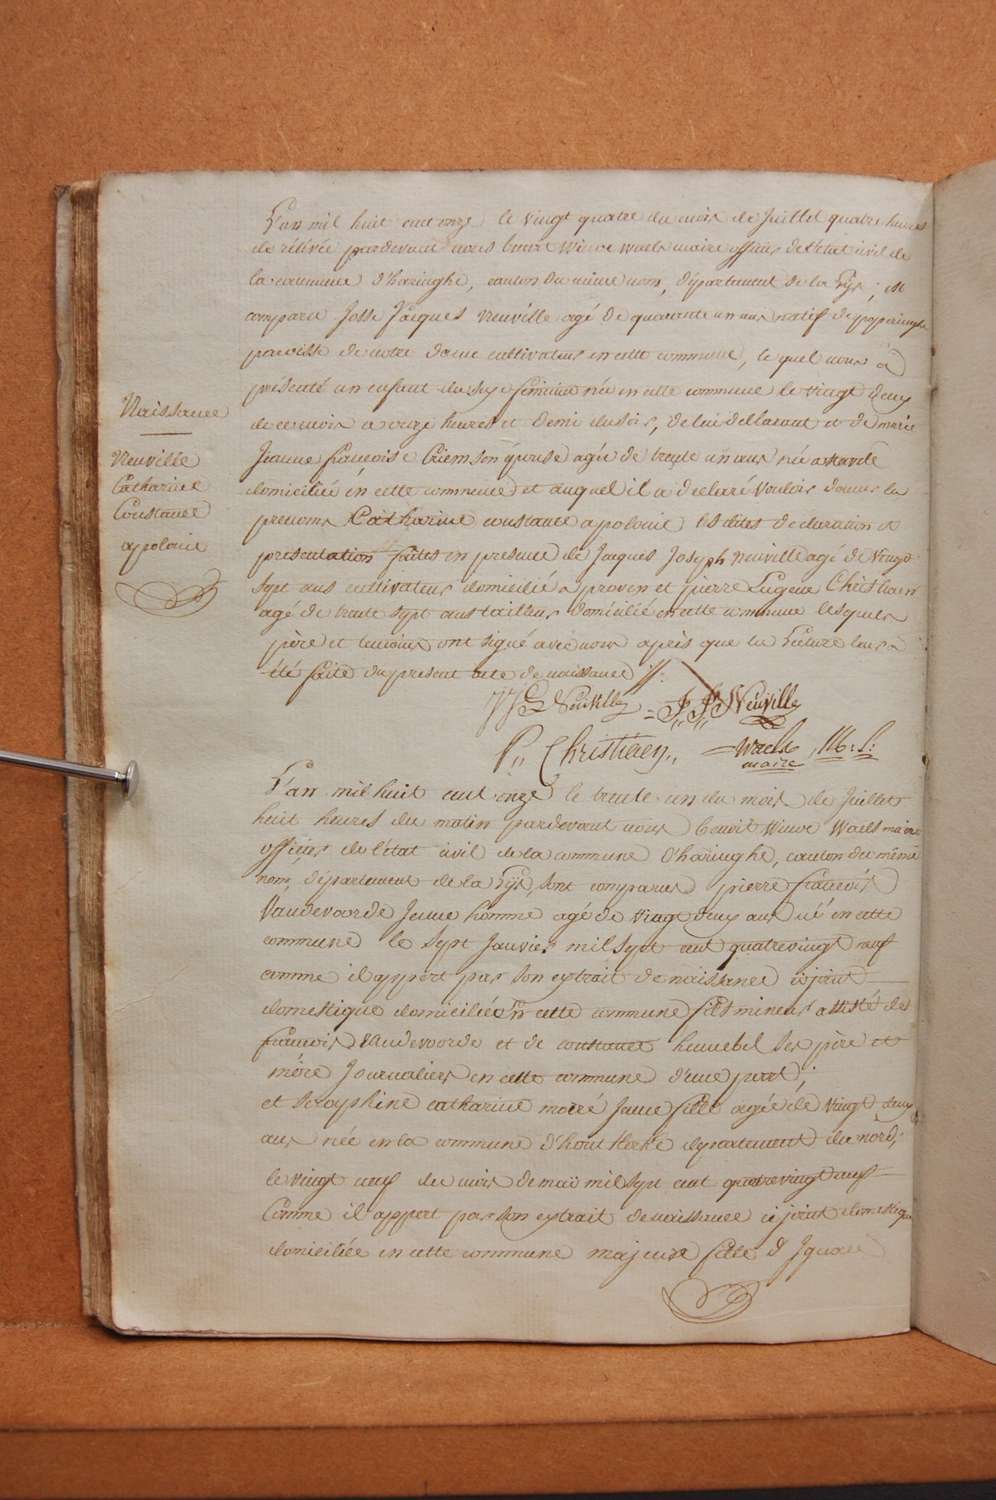 Naissance
Neuville
Catharine
Constance
apolonie
L'an mil huit cent onze le vingt quatre du mois de Juillet quatre heures
de rélévée pardevant nous benoit Winoc Waels maire officier de l'état civil de
la commune d'haringhe, canton du même nom, département de la Lys, est
comparu Josse Jacques Neuville agé de quarante un ans natif de poperinghe
paroisse de notre dame cultivateur en cette commune, le quel nous à
présenté un enfant du sexe féminin née en cette commune le vingt deux
de ce mois a onze heures et demi du soir, de lui déclarant et de marie
Jeanne françoise Criem son épouse agée de trente un ans née a
domiciliée en cette commune et auquel il a declaré vouloir donner les
prenoms Catharine constance apolonie les dites declaration et
presentation faites en presence de Jacques Joseph Neuville agé de vingt
sept ans cultivateur domicilié a proven et pierre Eugene Christiaen
agé de trente sept ans tailleur domicilié en cette commune lesquels
père et temoins ont signé avec nous après que la lecture leur a
été faite du present acte de naissance ://:
JJ Neuville = J J Neuville
P,, Christiaen,, Waels M:r:
maire
L'an mil huit cent onze le trente un du mois de Juillet
huit heures du matin pardevant nous benoit Winoc Waels maire
officier de l'état civil de la commune d'haringhe, canton du même
nom, département de la Lys, sont comparus pierre françois
Vandevoorde Jeune homme agé de vingt deux ans né en cette
commune le sept Janvier mil sept cent quatrevingt neuf
comme il appert par son extrait de naissance ci joint
domestique domicilié en cette commune fils mineur assisté de
françois Vandevoorde et de constance hennebel ses père et
mère Journaliers en cette commune d'une part;
et Seraphine catharine moré Jeune fille agée de vingt deux
ans née en la commune d'hout Kerke département du nord,
le vingt neuf du mois de mai mil sept cent quatrevingt neuf
Comme il appert par son extrait de naissance ci joint domestique
domiciliée en cette commune majeure fille d'Ignace